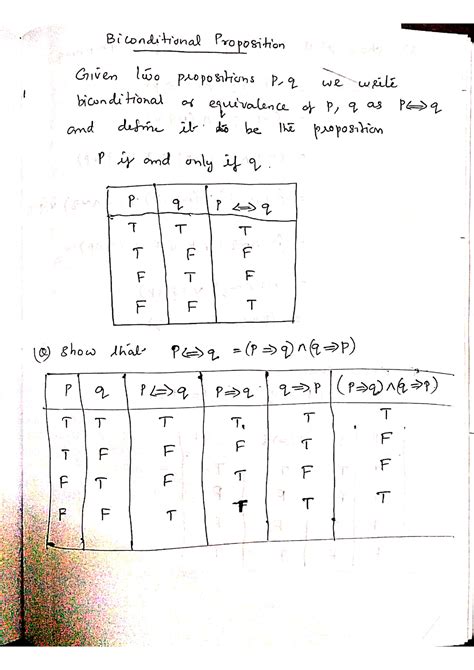 Biconditional Proposition
Given two propositions P, q we write
biconditional or equivalence of P, q as P⇔q
and define it to be the proposition
P if and only if q.
P q P ⇔ q
T T T
T F F
F T F
F F T
(Q) Show that P⇔q = (P⇒q)∧(q⇒P)
P q P⇔q P⇒q q⇒P (P⇒q)∧(q⇒P)
T T T T T T
T F F F T F
F T F T F F
F F T T T